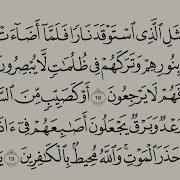 ثَلِ ٱلَّذِى ٱسْتَوْقَدَ نَارًا فَلَمَّآ أَضَآءَتْ
بِنُورِهِمْ وَتَرَكَهُمْ فِى ظُلُمَٰتٍ لَّا يُبْصِرُونَ
فَهُمْ لَا يَرْجِعُونَ ١٨ أَوْ كَصَيِّبٍ مِّنَ ٱلسَّ
رَعْدٌ وَبَرْقٌ يَجْعَلُونَ أَصَٰبِعَهُمْ فِىٓ ءَاذَ
حَذَرَ ٱلْمَوْتِ ۚ وَٱللَّهُ مُحِيطٌۢ بِٱلْكَٰفِرِينَ ١٩